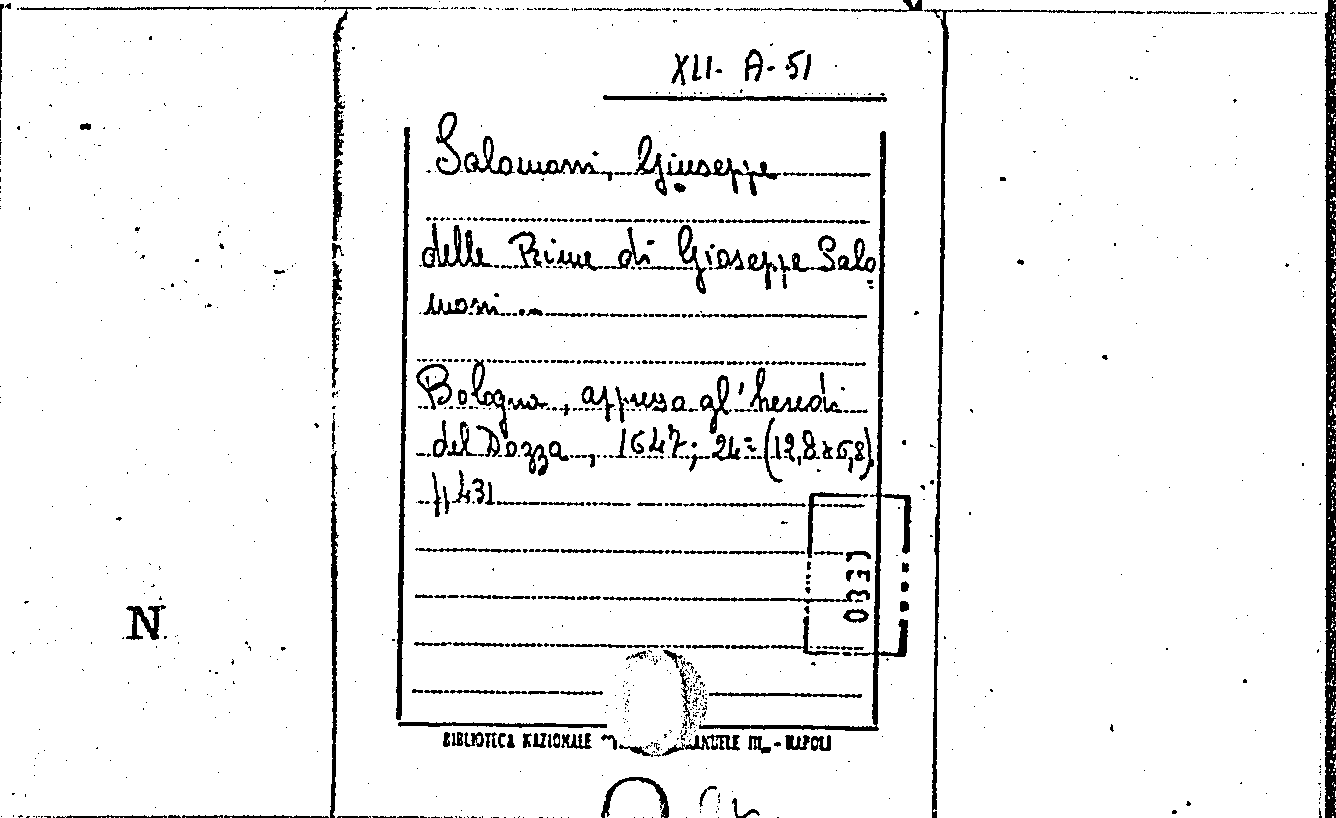 XLI-A-51
Salomoni, Giuseppe
delle Rime di Gioseppe Salo
moni ...
Bologna, appresso gl'heredi
del Dozza, 1647; 24= (12,8x6,8)
pp 431
N
BIBLIOTECA NAZIONALE ANUELE III - NAPOLI